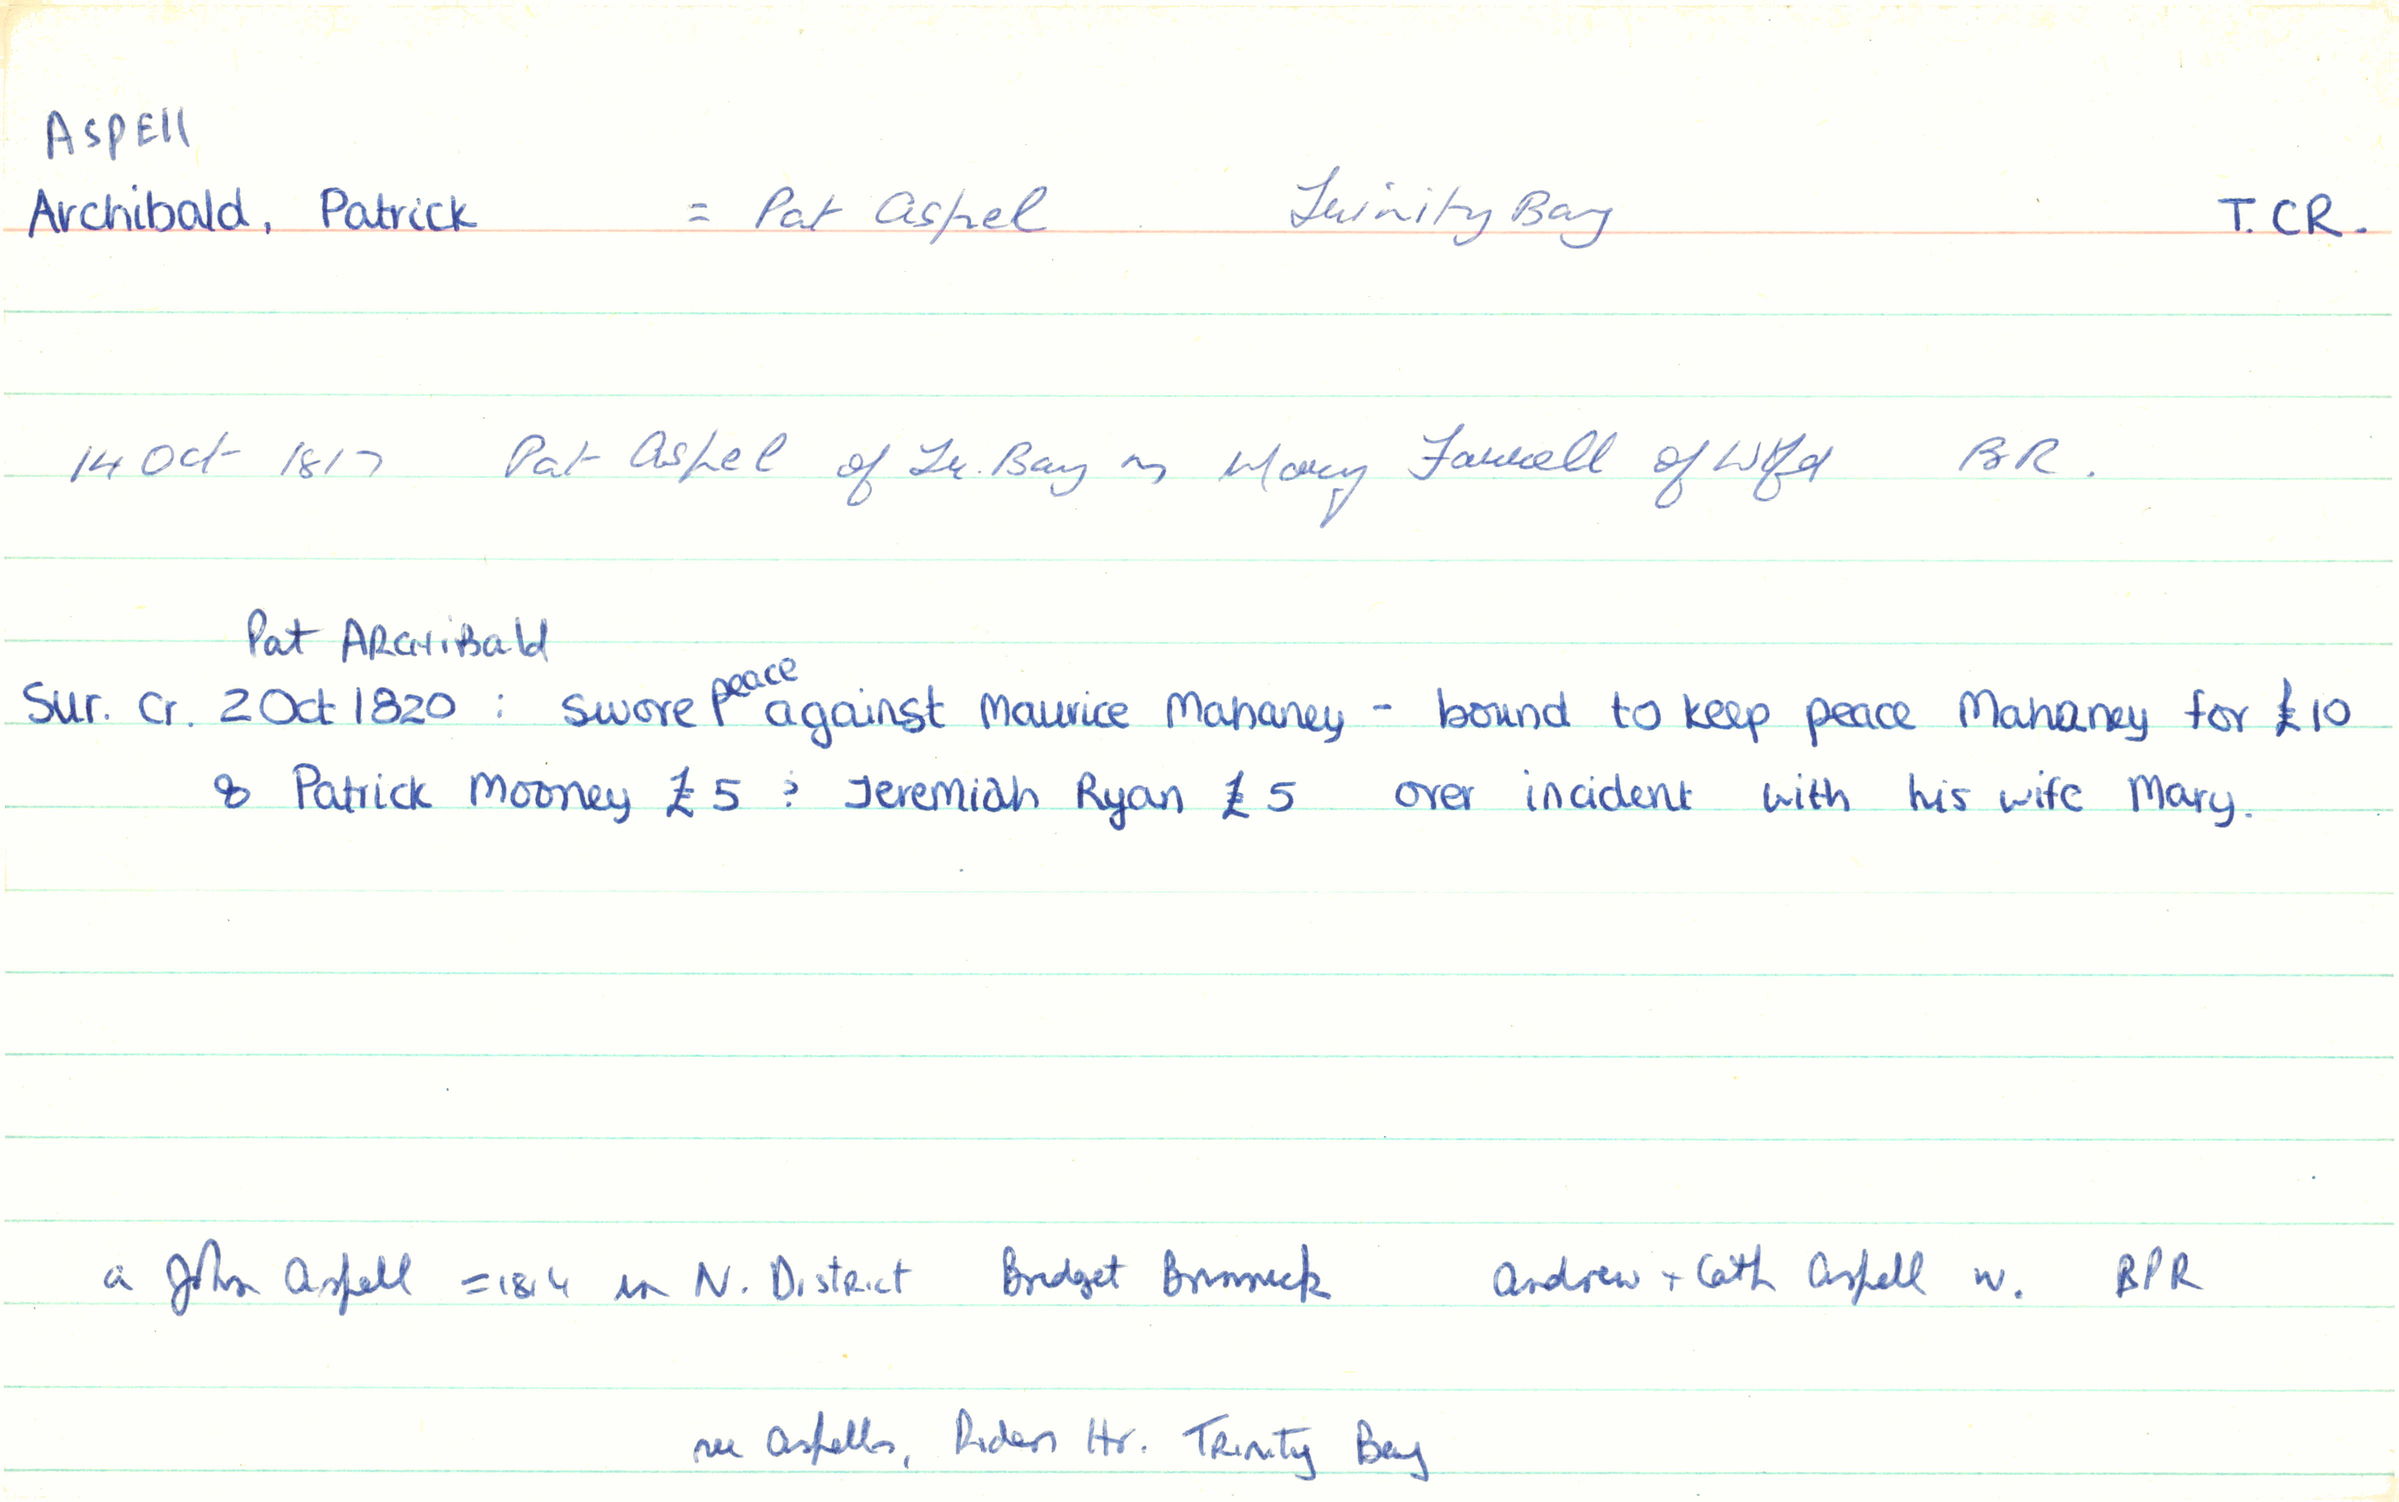 ASPEll
Archibald, Patrick = Pat Aspel Trinity Bay T.CR.
14 Oct 1817 Pat Aspel of Tr. Bay m Mary Farrell of Wfd BR.
Pat ARCHiBald
Sur. Cr. 2 Oct 1820 : swore peace against Maurice Mahaney - bound to keep peace Mahaney for £10
& Patrick Mooney £5 & Jeremiah Ryan £5 over incident with his wife Mary.
a John Aspell = 1814 in N. District Bridget Andrew + Cath Aspell w. BPR
see Aspells, Riders Hr. Trinity Bay